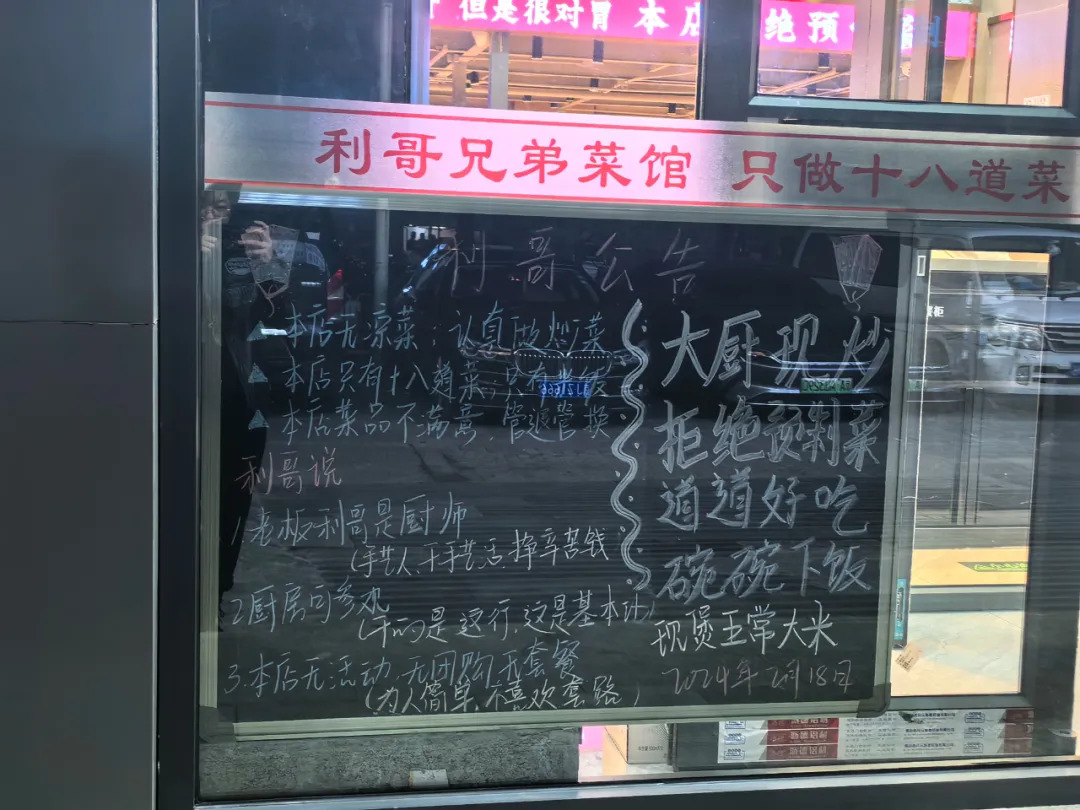 但是很对胃 本店
绝预
利哥兄弟菜馆 只做十八道菜
利哥公告
▲本店无凉菜；认真做炒菜
▲本店只有十八道菜；
▲本店菜品不满意，管退管换
利哥说
1老板利哥是厨师
(手艺人、干手艺活、挣辛苦钱
2厨房可参观
(干的是这行，这是基本功)
3.本店无活动、无团购、无套餐
(为人简单，不喜欢套路)
大厨现炒
拒绝预制菜
道道好吃
碗碗下饭
现煲五常大米
2024年2月18日